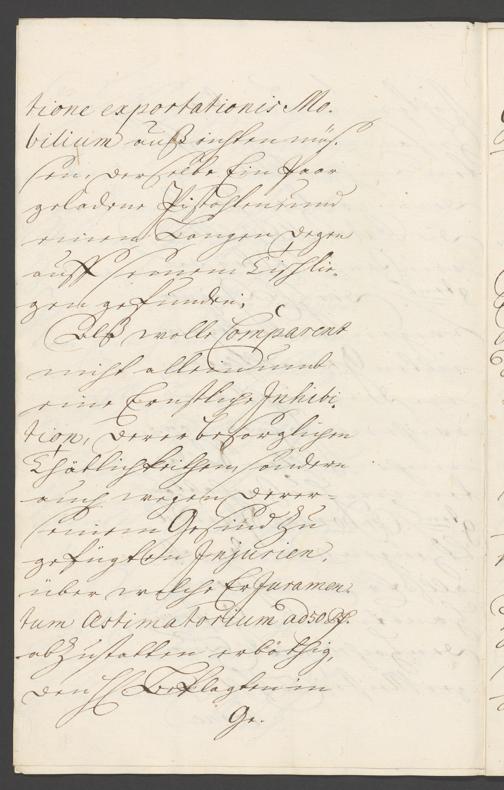 tione exportationis Mo-
bilium außrichten müs-
sen, derselbe Ein Paar
geladene Pistohlen und
einen Langen Degen
auff seinem Tisch lie-
gen gefunden;
Alß wolle Comparent
nicht allein umb
eine Ernstliche Inhibi-
tion, derer besorglichen
Thätlichkeithen, sondern
auch wegen derer
seinem Gesind zu
gefügten Injurien,
über welche Er Juramen-
tum Æstimatorium ad 50
abzustatten erböthig,
den Beklagten in
Ge-